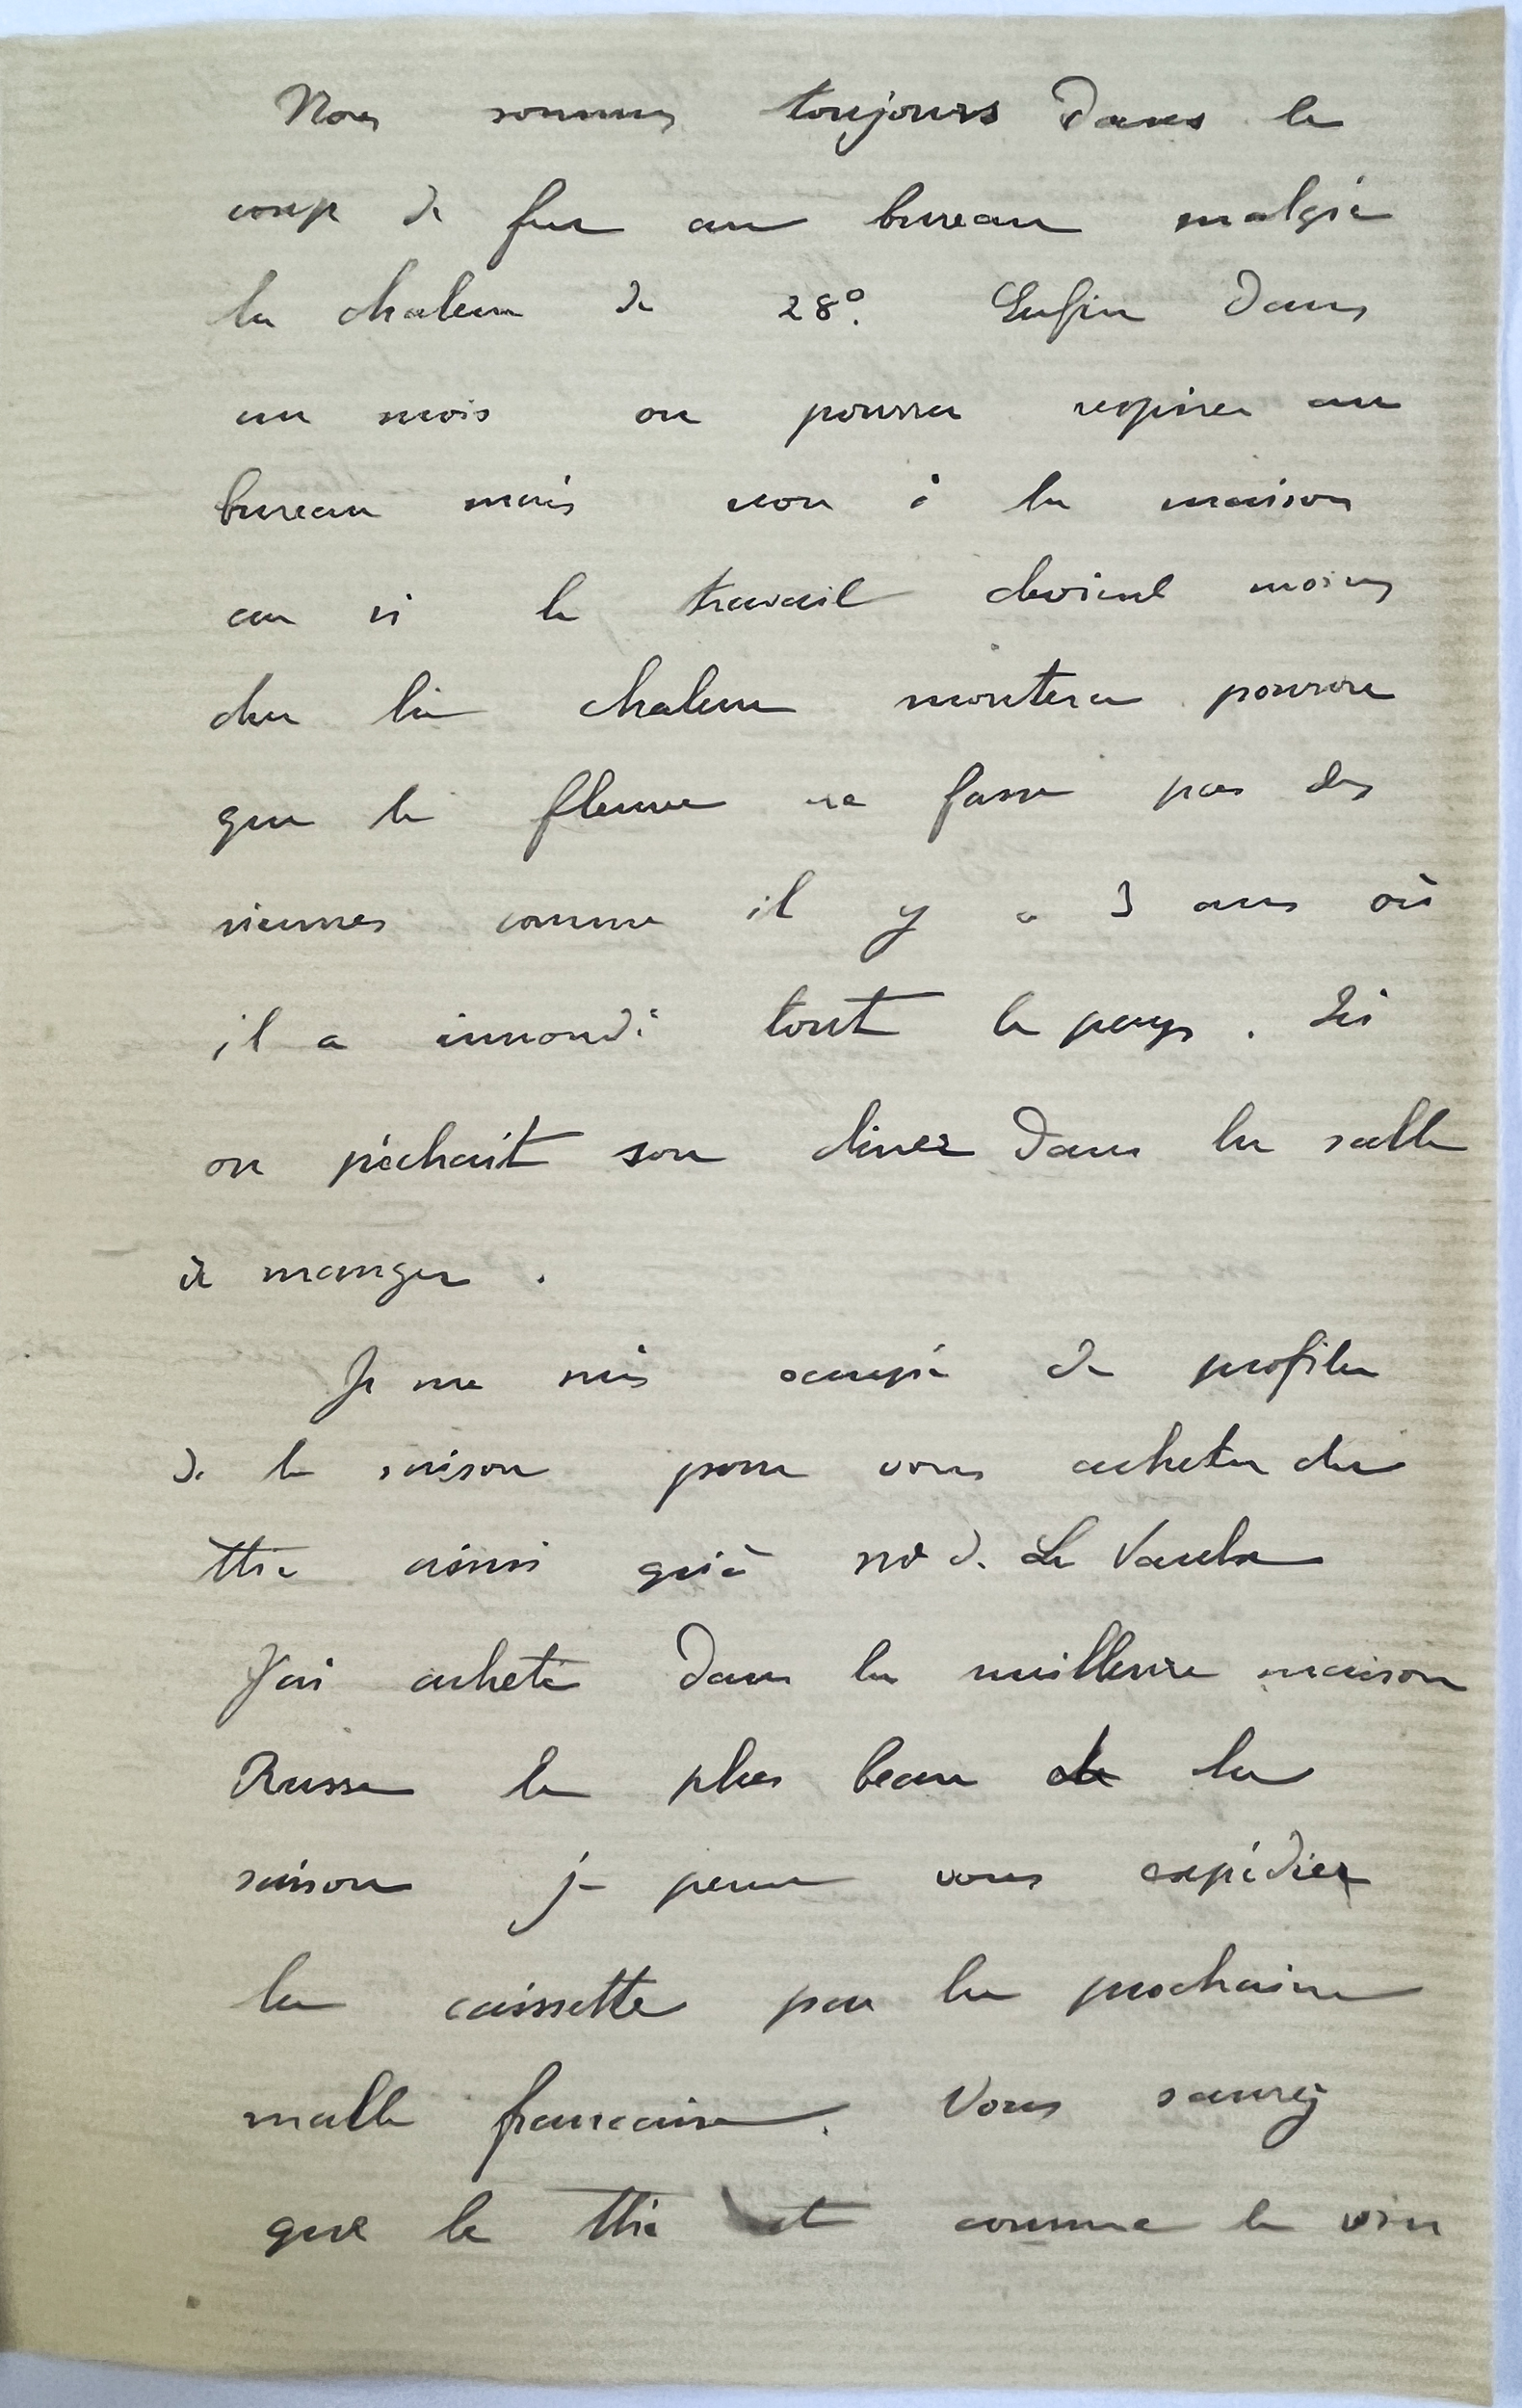 Nous sommes toujours dans le
coup de feu au bureau malgré
la chaleur de 28°. Enfin dans
un mois on pourra respirer au
bureau mais non à la maison
car si le travail devient moins
dur la chaleur montera pourvu
que le fleuve ne fasse pas des
siennes comme il y a 3 ans où
il a innondé tout le pays. Ici
on pêchait son diner dans la salle
à manger.
Je me suis occupé de profiter
de la saison pour vous acheter du
thé ainsi qu'à Md. Le Vaulx
J'ai acheté dans la meilleure maison
Russe le plus beau de la
saison je peux vous expédier
la caissette par la prochaine
malle francaise. Vous saurez
que le thé est comme le vin